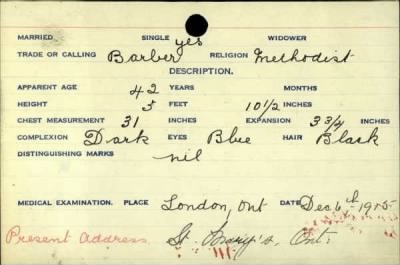 MARRIED SINGLE yes WIDOWER
TRADE OR CALLING Barber RELIGION Methodist
DESCRIPTION.
APPARENT AGE 42 YEARS MONTHS
HEIGHT 5 FEET 10 1/2 INCHES
CHEST MEASUREMENT 31 INCHES EXPANSION 3 3/4 INCHES
COMPLEXION Dark EYES Blue HAIR Black
DISTINGUISHING MARKS nil
MEDICAL EXAMINATION. PLACE London, Ont DATE Dec 6th 1915
Present Address, St. Mary's, Ont.